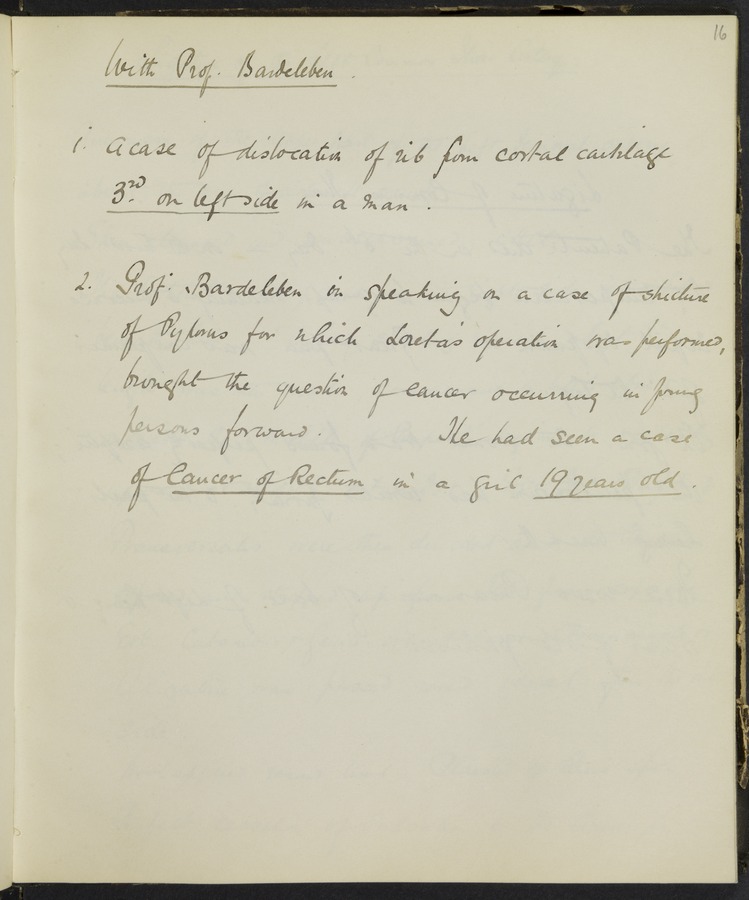 16
With Prof. Bardeleben.
1. A case of dislocation of rib from costal cartilage
3rd on left side in a man.
2. Prof. Bardeleben in speaking on a case of stricture
of Pylorus for which Loreta's operation was performed,
brought the question of cancer occurring in young
persons forward. He had seen a case
of Cancer of Rectum in a girl 19 years old.